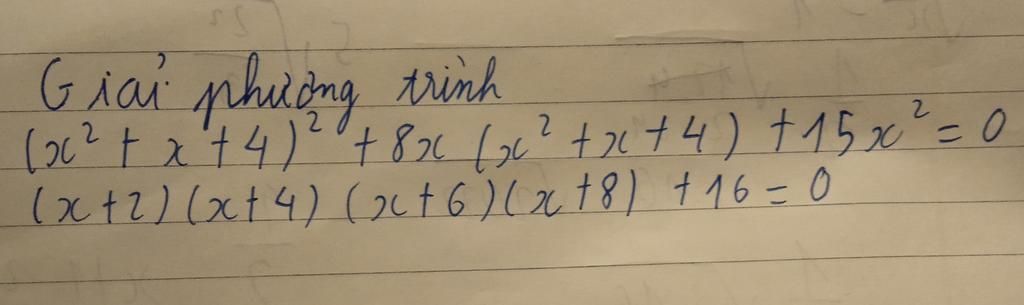 Giải phương trình
(x² + x + 4)² + 8x (x² + x + 4) + 15x² = 0
(x+2) (x+4) (x+6) (x+8) + 16 = 0